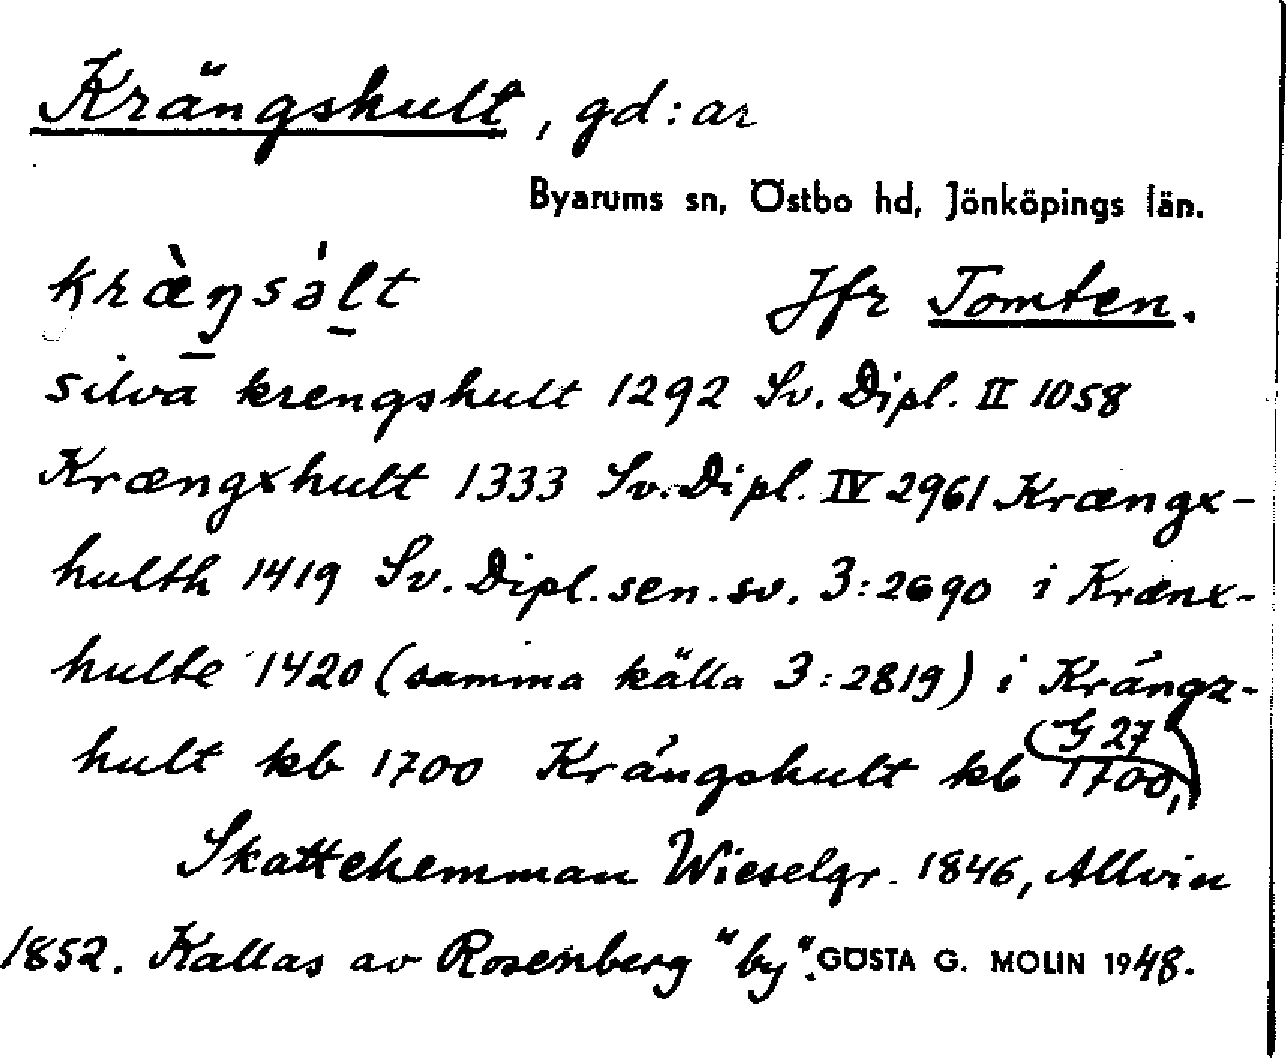 Krängshult, gd:ar
Byarums sn, Östbo hd, Jönköpings län.
kræ̀ŋsa̍lt Jfr Tomten.
silva krengshult 1292 Sv. Dipl. II 1058
Krængxhult 1333 Sv. Dipl. IV 2961 Krængx-
hulth 1419 Sv. Dipl. sen. sv. 3:2690 i Krænx-
hulte 1420 (samma källa 3:2819) i Krångz-
hult kb 1700 Krångshult kb 1700,
G 27
Skattehemman Wieselgr. 1846, Allvin
1852. Kallas av Rosenberg "by". GÖSTA G. MOLIN 1948.